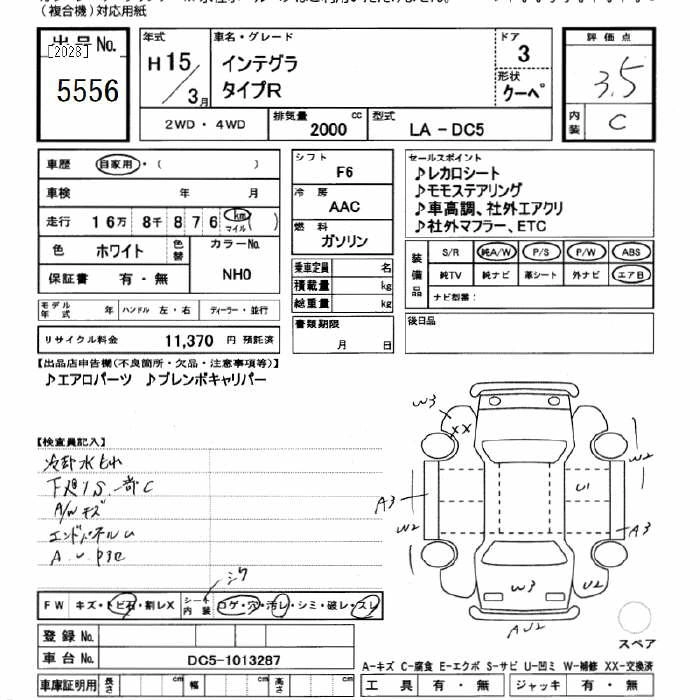 （複合機）対応用紙
出品No.
[2023]
5556
年式
H15／3月
車名・グレード
インテグラ
タイプR
ドア
3
形状
クーペ
評価点
3.5
内装
C
2WD・4WD
排気量
2000 cc
型式
LA－DC5
車歴
自家用・（　　）
車検 年 月
走行 16万8千876 km マイル（　）
色 ホワイト
色替
カラーNo.
NH0
保証書 有・無
モデル年式 年
ハンドル 左・右
ディーラー・並行
リサイクル料金 11,370 円 預託済
シフト
F6
冷房
AAC
燃料
ガソリン
乗車定員 名
積載量 kg
総重量 kg
書類期限
月 日
セールスポイント
♪レカロシート
♪モモステアリング
♪車高調、社外エアクリ
♪社外マフラー、ETC
装備品
S/R 純A/W P/S P/W ABS
純TV 純ナビ 革シート 外ナビ エアB
ナビ型番：
後日品
【出品店申告欄(不良箇所・欠品・注意事項等)】
♪エアロパーツ ♪ブレンボキャリパー
【検査員記入】
冷却水もれ
下廻りS一部C
A/Wキズ
エンドパネルU
シワ
FW キズ・トビ石・割レX
シート内装
コゲ・穴・汚レ・シミ・破レ・スレ
登録No.
車台No. DC5-1013287
車庫証明用 長さ cm 幅 cm 高さ cm
W3
XX
W2
A3
W2
U1
A3
W3
U2
AU2
スペア
A-キズ C-腐食 E-エクボ S-サビ U-凹ミ W-補修 XX-交換済
工具 有・無 ジャッキ 有・無